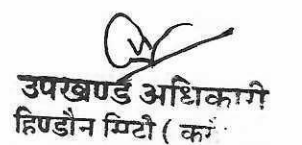 उपखण्ड अधिकारी
हिण्डौन सिटी ( करौ